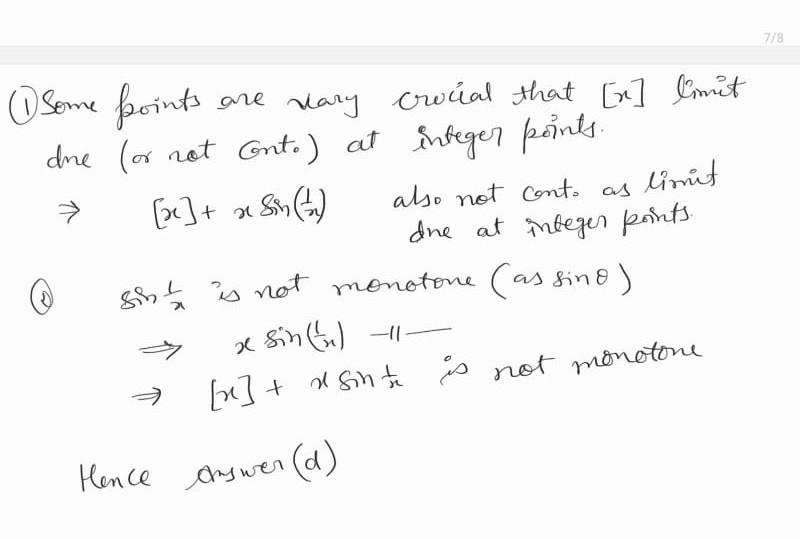 7/8
① Some points are vary crucial that [x] limit
dne (or not Cont.) at integer points.
⇒ [x] + x Sin(1/x) also not cont. as limit
dne at integer points.
② sin 1/x is not monotone (as sin θ)
⇒ x sin(1/x) —11—
⇒ [x] + x sin 1/x is not monotone
Hence answer (d)